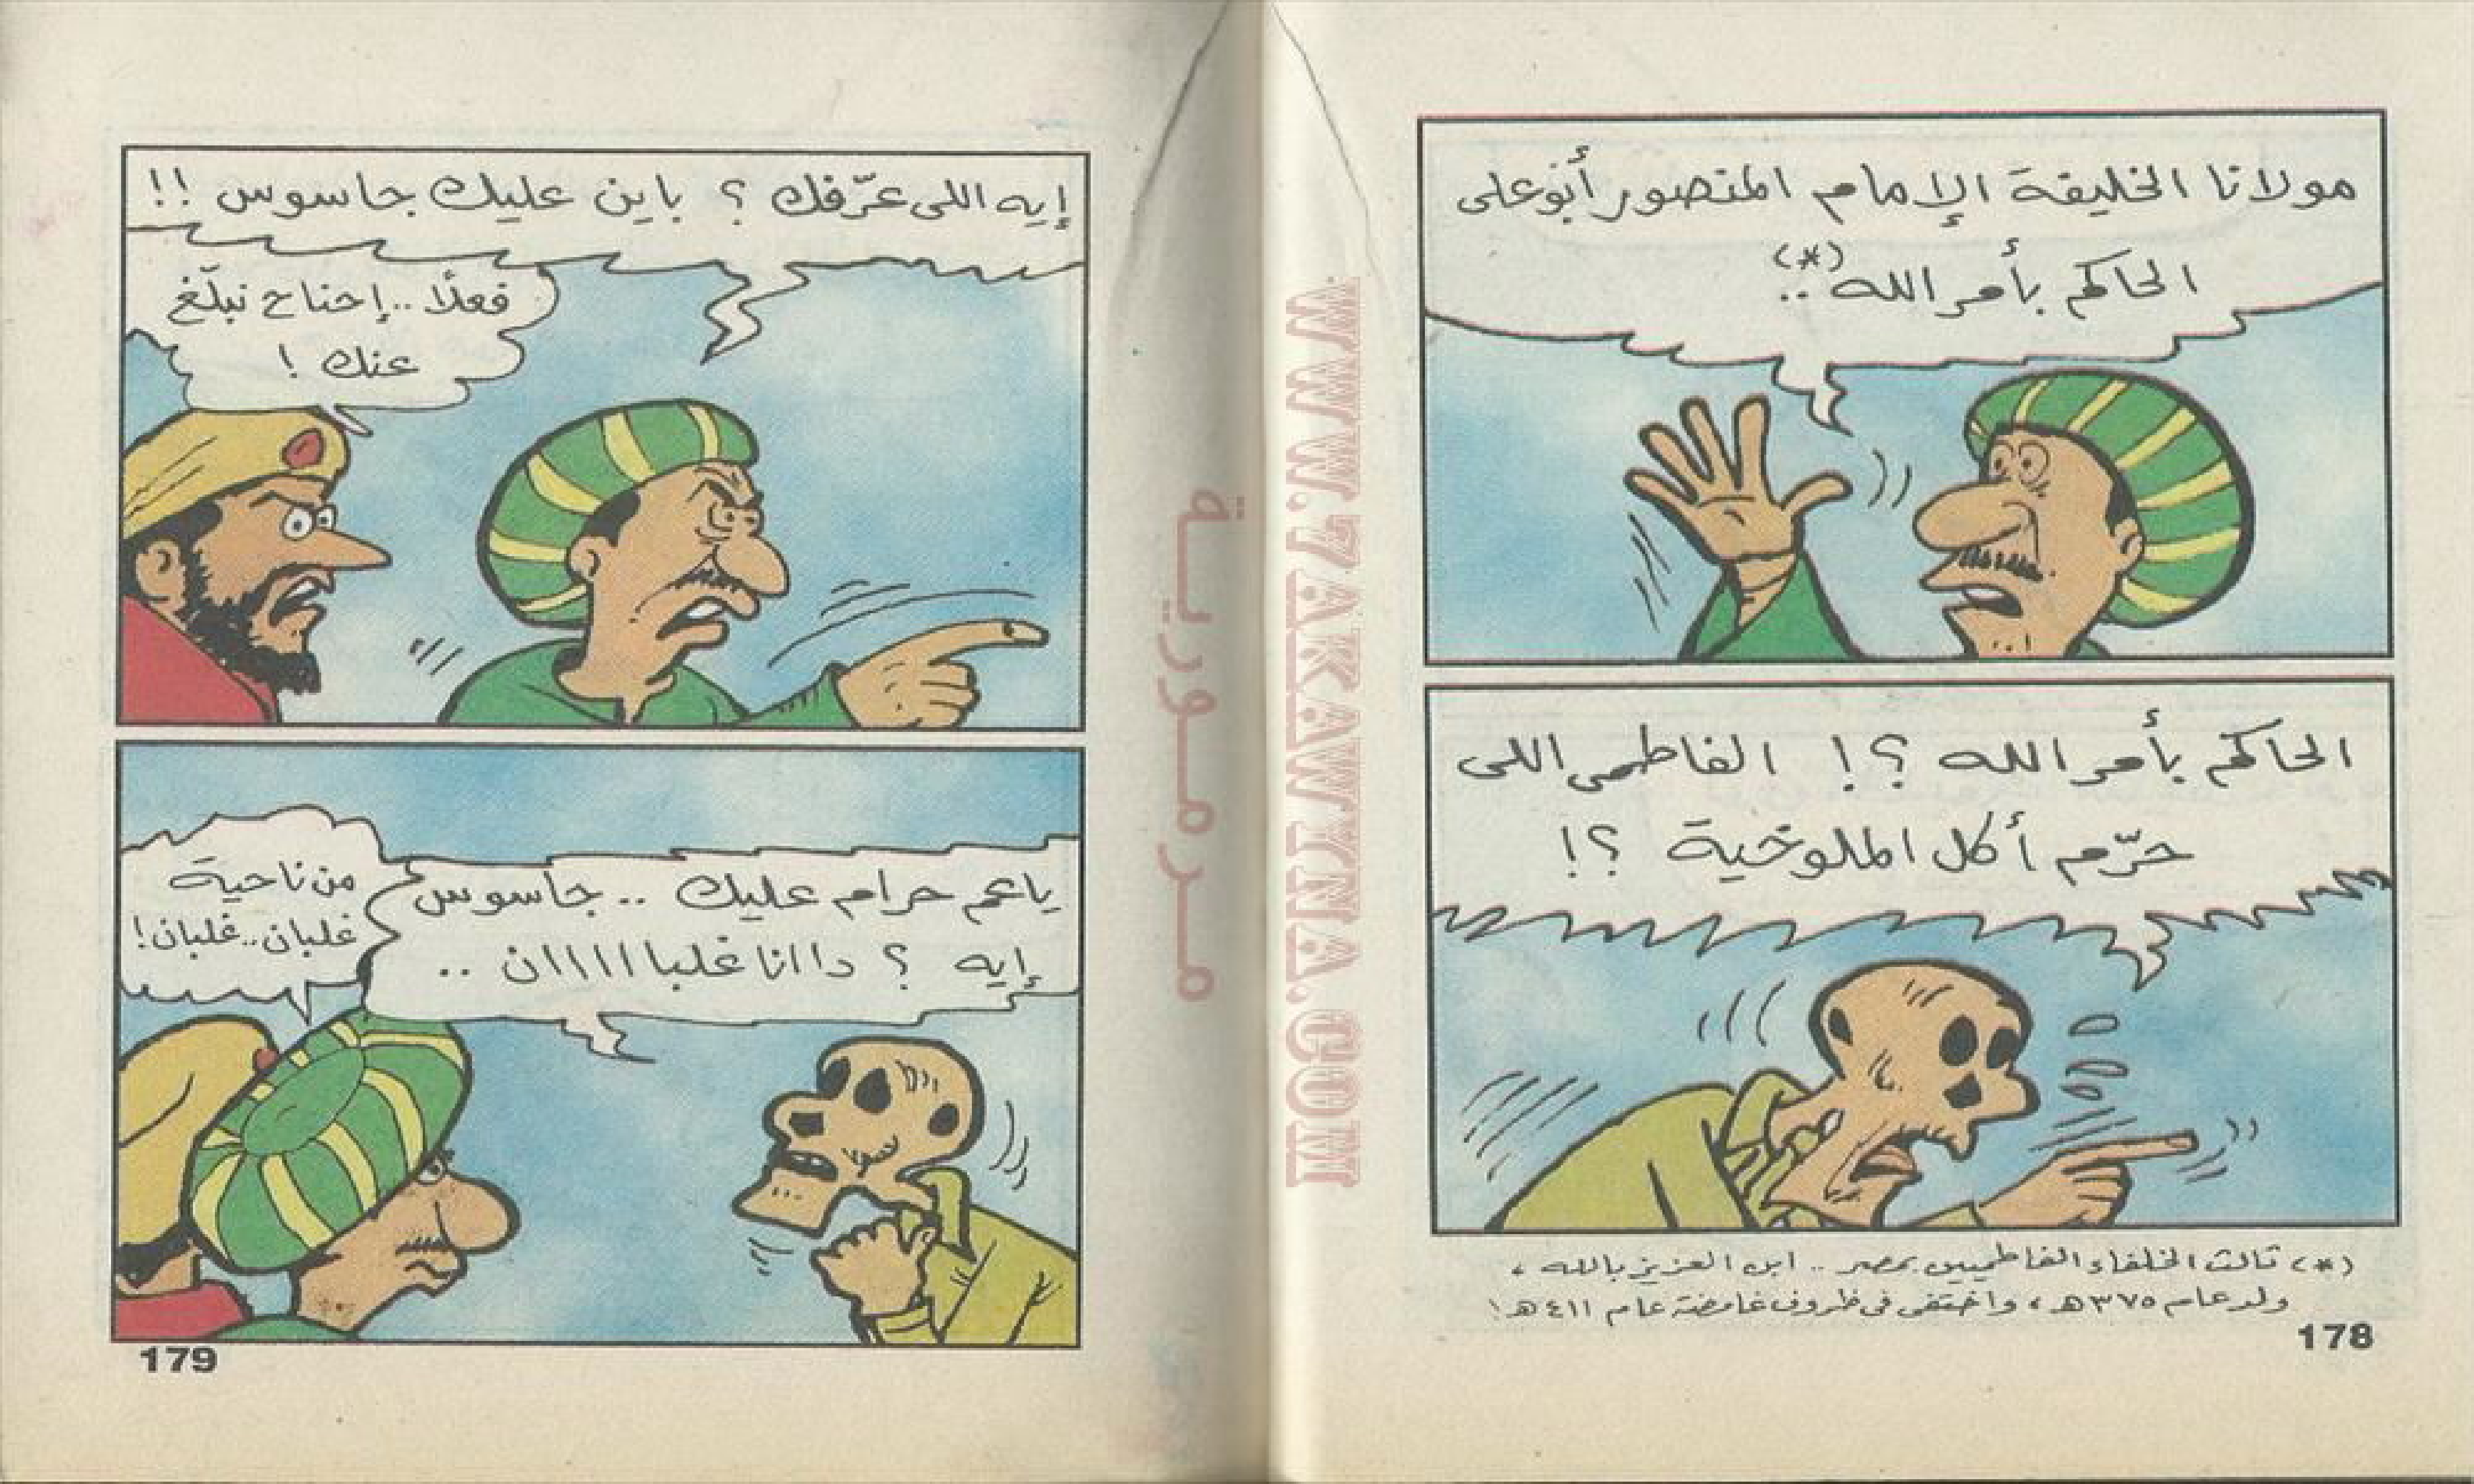 مولانا الخليفة الإمام المنصور أبو على
الحاكم بأمر الله (*)..
الحاكم بأمر الله ؟! الفاطمى اللى
حرّم أكل الملوخية ؟!
(*) ثالث الخلفاء الفاطميين بمصر .. ابن العزيز بالله ،
ولد عام ٣٧٥هـ ، واختفى فى ظروف غامضة عام ٤١١هـ !
178
إيه اللى عرّفك ؟ باين عليك جاسوس !!
فعلاً .. إحناح نبلّغ
عنك !
ياعم حرام عليك .. جاسوس
إيه ؟ داانا غلبااااان ..
من ناحية
غلبان .. غلبان !
179
مرمورية
WWW.7AKAWINA.COM